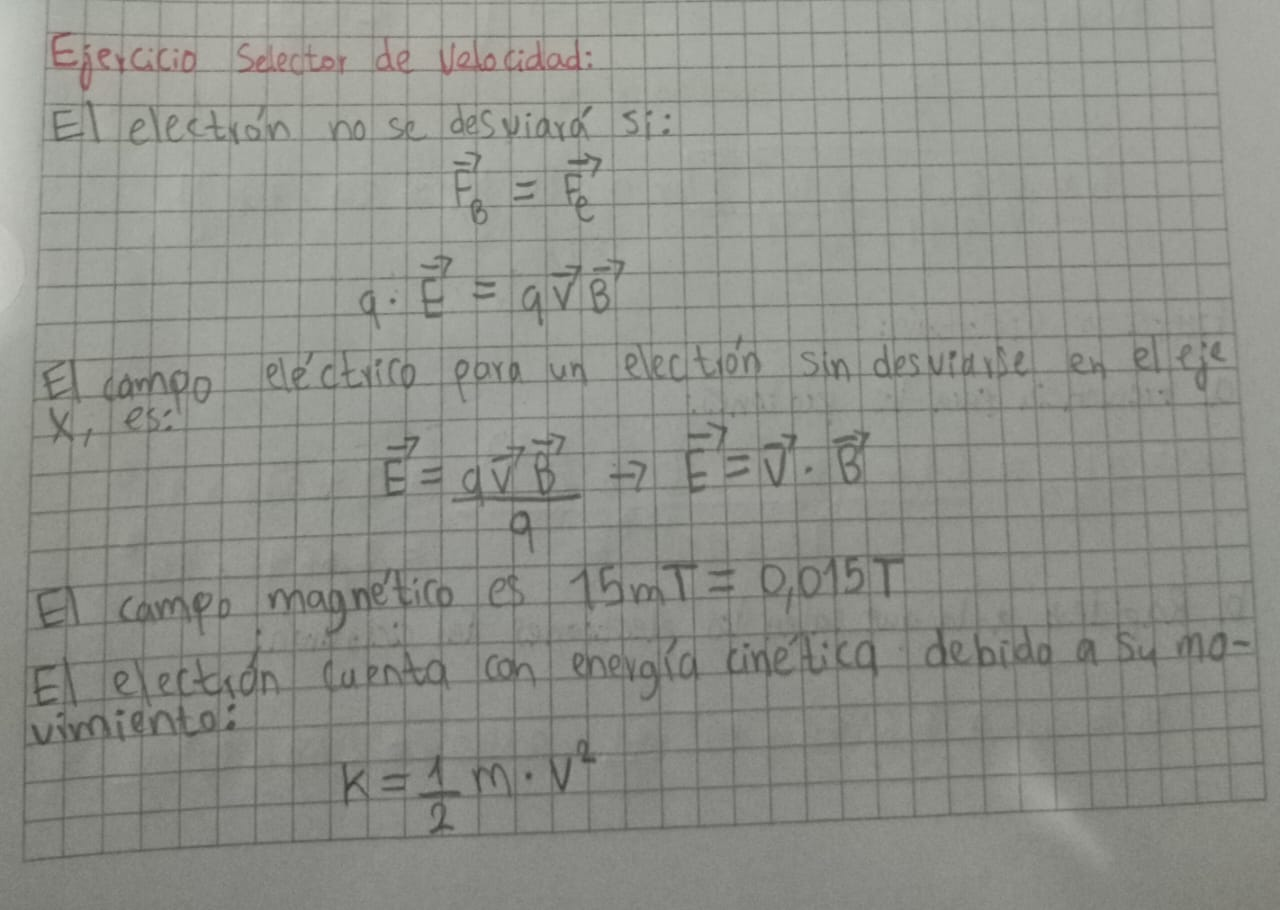 Ejercicio Selector de Velocidad:
El electrón no se desviará si:
F⃗_B = F⃗_e
q · E⃗ = q V⃗ B⃗
El campo eléctrico para un electrón sin desviarse en el eje
X, es:
E⃗ = q V⃗ B⃗ / q → E⃗ = V⃗ · B⃗
El campo magnético es 15mT = 0,015T
El electrón cuenta con energía cinética debido a su mo-
vimiento:
K = 1/2 m · V²